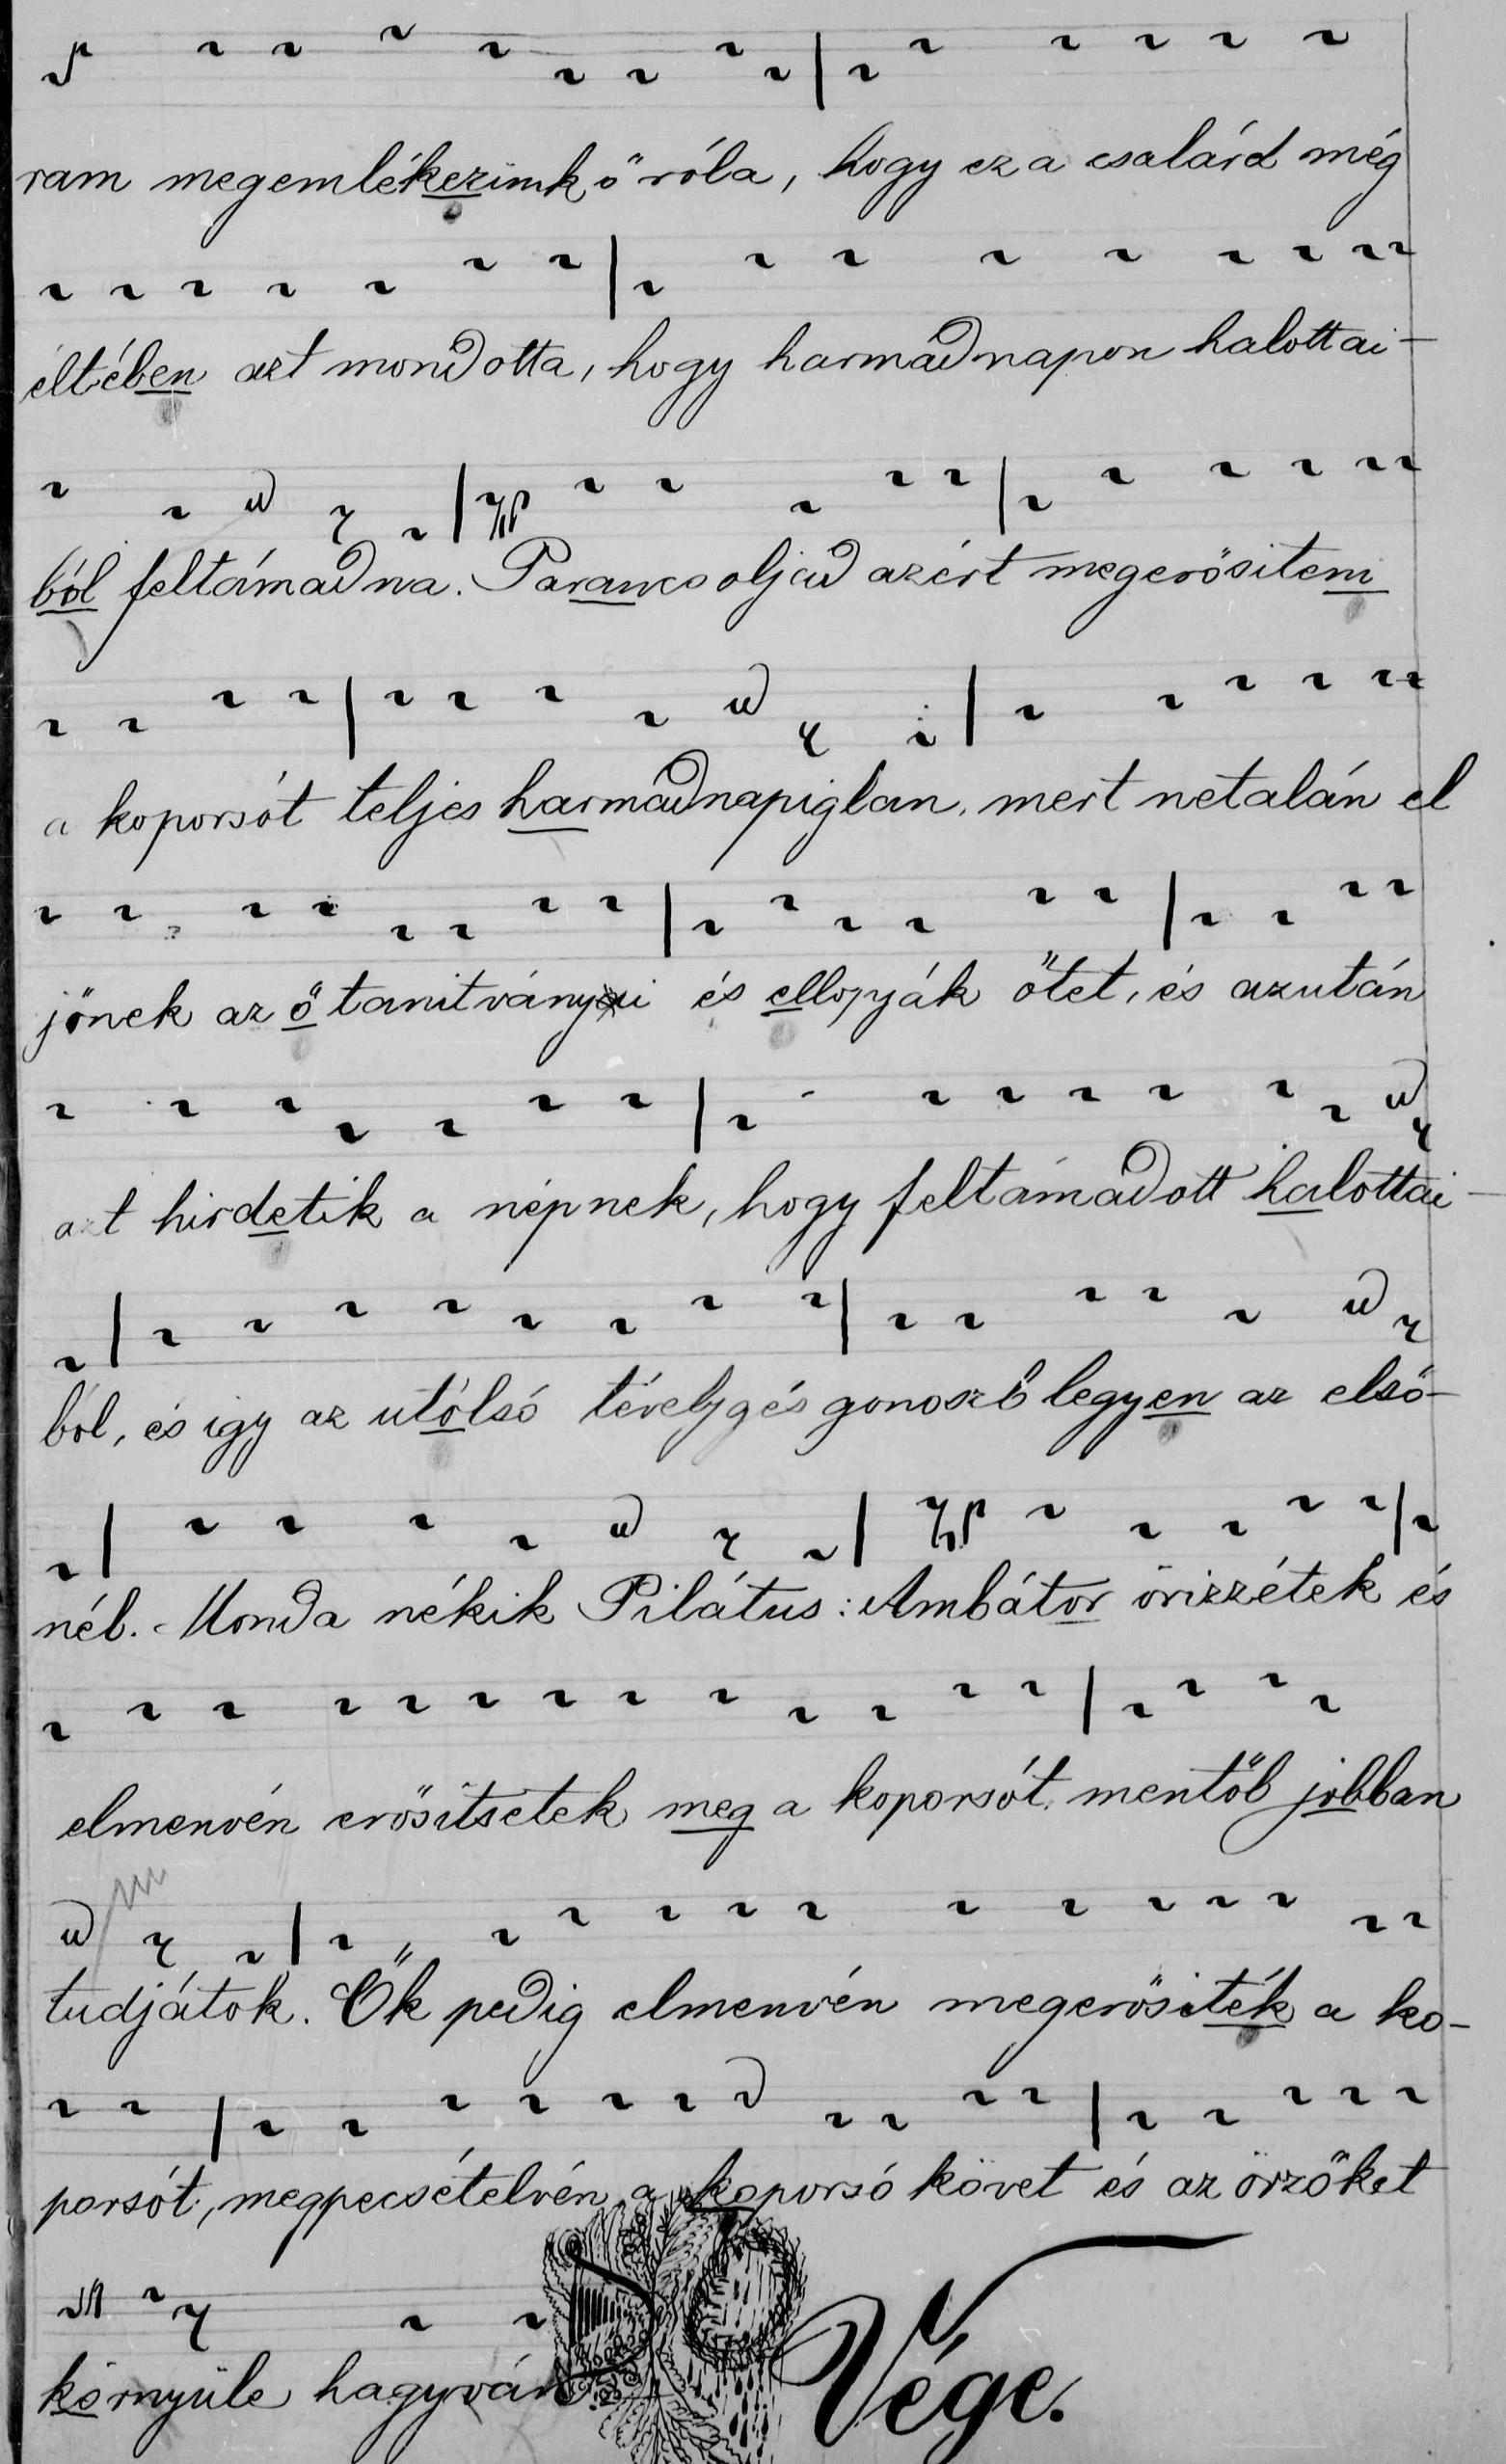 ram megemlékezünk ő róla, hogy ez a csalárd még
éltében azt mondotta, hogy harmadnapon halottai-
ból feltámadna. Parancsoljad azért megerősiteni
a koporsót teljes harmadnapiglan, mert netalán el
jőnek az ő tanitványai és ellopják őtet, és azután
azt hirdetik a népnek, hogy feltámadott halottai-
ból, és igy az utólsó tévelygés gonoszb legyen az első-
nél. Monda nékik Pilátus: Ambátor őrizzétek és
elmenvén erősitsetek meg a koporsót, mentől jobban
tudjátok. Ők pedig elmenvén megerősiték a ko-
porsót, megpecsételvén a koporsó követ és az őrzőket
környüle hagyván.
Vége.